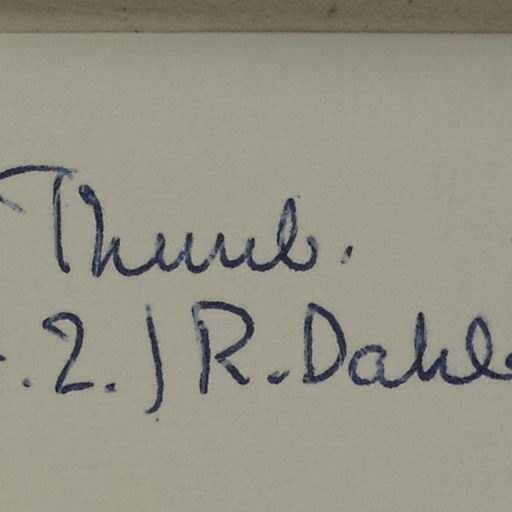 Thunb.
.2.) R. Dahl